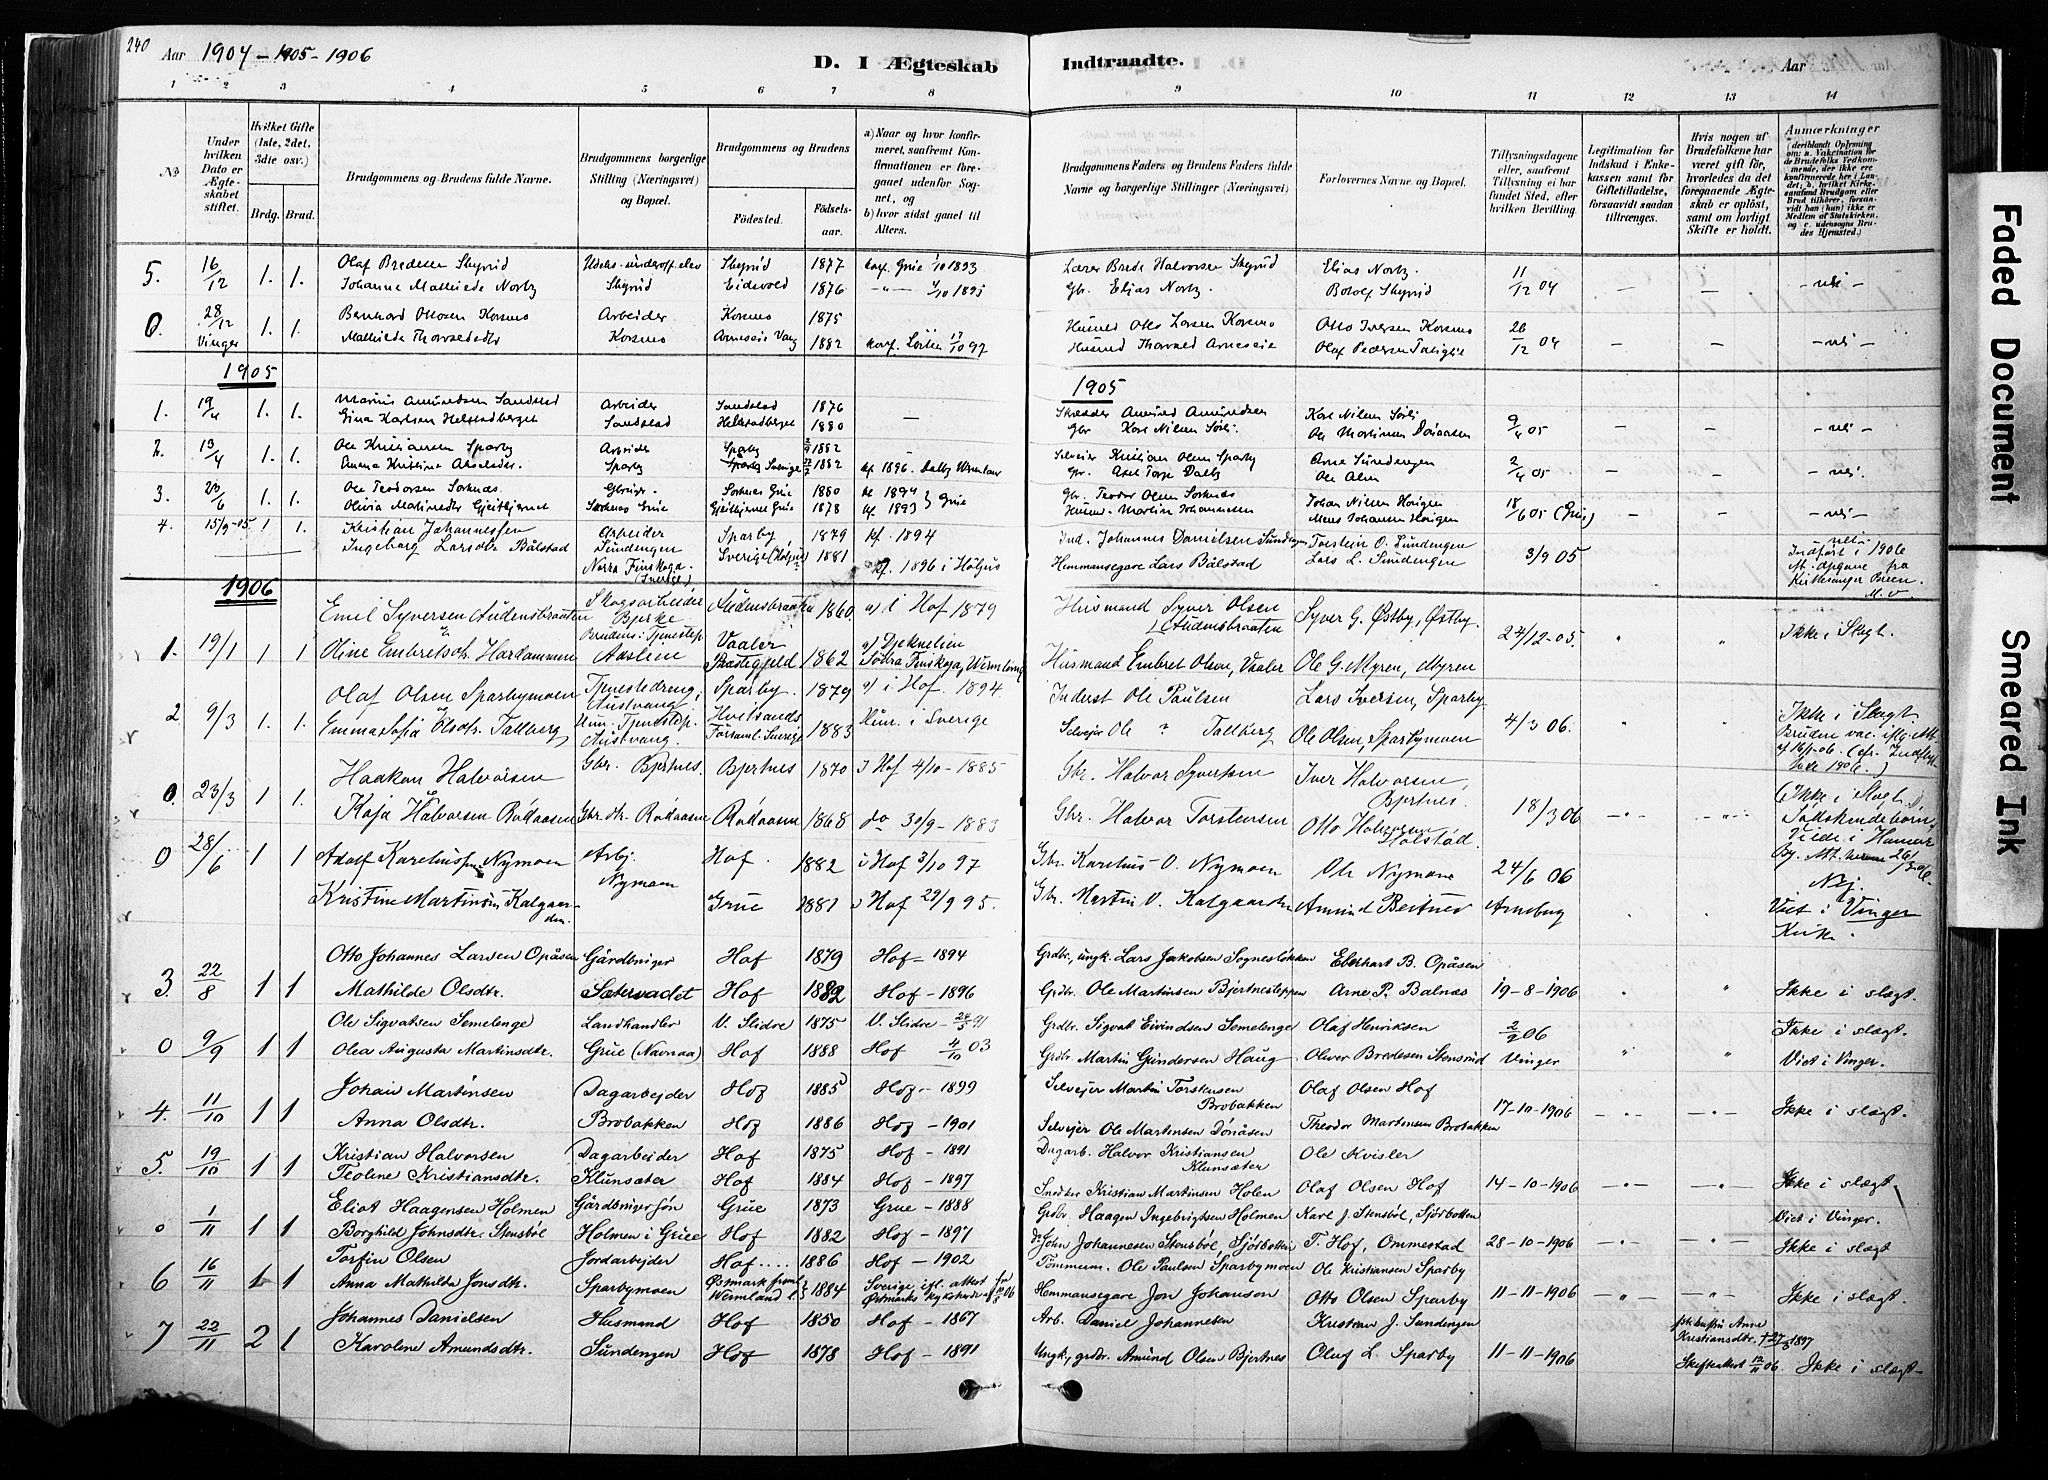 240
Aar 1904 - 1905 - 1906
D. I Ægteskab Indtraadte.
Aar
1 2 3 4 5 6 7 8 9 10 11 12 13 14
No
Under hvilken Dato er Ægteskabet stiftet.
Hvilket Gifte (1ste, 2det, 3dte osv.)
Brdg. Brud.
Brudgommens og Brudens fulde Navne.
Brudgommens borgerlige Stilling (Næringsvei) og Bopæl.
Brudgommens og Brudens
Födested. Födselsaar.
a) Naar og hvor konfirmeret, saafremt Konfirmationen er foregaaet udenfor Sognet, og
b) hvor sidst gaaet til Alters.
Brudgommens Faders og Brudens Faders fulde Navne og borgerlige Stillinger (Næringsvei)
Forlovernes Navne og Bopæl.
Tillysningsdagene eller, saafremt Tillysning ei har fundet Sted, efter hvilken Bevilling.
Legitimation for Indskud i Enkekassen samt for Giftetilladelse, forsaavidt saadan tiltrænges.
Hvis nogen af Brudefolkene har været gift før, hvorledes da det foregaaende Ægteskab er oplöst, samt om lovligt Skifte er holdt.
Anmærkninger (deriblandt Oplysning om: a. Vaccination for de Brudefolks Vedkommende, der ikke ere konfirmerede her i Landet; b. hvilket Kirkesamfund Brudgom eller Brud tilhører, forsaavidt han (hun) ikke er Medlem af Statskirken, og c. udensogns Brudes Hjemsted.)
5. 16/12 1. 1. Olaf Bredesen Skyrud Skyrud 1877 konf. Grue 1/10 1893 Lærer Brede Halvorsen Skyrud Elias Norby 11/12 04 - - - nei -
Johanne Mathilde Norby Skyrud Eidsvold 1876 - " - 1/10 1895 Gbr. Elias Norby. Botolf Skyrud
0. 28/12 Vinger 1. 1. Bernhard Ottosen Korsmo Arbeider Korsmo 1875 Husmd Otto Larsen Korsmo Otto Iversen Korsmo 26/12 04 - - - nei
Mathilde Thorvaldsdtr Korsmo Arneseie Vang 1882 konf. Löiten 17/10 97 Husmd Thorvald Arneseie Olaf Pedersen
1905 1905
1. 19/4 1. 1. Marius Amundsen Sandstad Arbeider Sandstad 1876 - Skrædder Amund Amundsen Karl Nilsen Sörli 9/4 05 - - - nei -
Gina Karlsen Helstadberget Sandstad Helstadberget 1880 Gbr Karl Nilsen Sörli. Ole Martinsen Donaasen
2. 13/4 1. 1. Ole Kristiansen Sparby Arbeider Sparby 1882 - Selveier Kristian Olsen Sparby Arne Sundengen 2/4 05 - - - nei.
Emma Kristine Akselsdr. Sparby Sverige 1882 kf 1896. Dalby Wermland Gbr. Axel Dalby Ole Olsen
3. 23/6 1. 1. Ole Teodorsen Sorknæs Gbruger. Sorknes Grue 1880 kf 1894 } Grue Gbr. Teodor Olsen Sorknæs Johan Nilsen Horigen 18/6 05 (Grue) - - - nei
Olivia Gjeitbjernet Sorknes Grue Gjeitbjernet Grue 1878 kf 1893 Husm. Martin Johannessen Mons Johansen Horigen
4. 15/9-05 1. 1. Kristian Johannessen Arbeider Sparby 1879 kf. 1894 Ind. Johannes Danielsen Sundengen Torstein O. Sundengen 3/9 05 nei
Ingeborg Larsdtr Bålstad Sundengen Norra Finskoga (Sverige) Sverige (Höljus) 1881 kf. 1896 i Höljus Hemmansegare Lars Bålstad Lars L. Sundengen Indført i 1906 M. Opgave fra Kirkesanger Breen
1906
1. 19/1 1 1 Emil Syversen Audensbraaten Skogsarbeider Bjerke Audensbraaten 1860 a) i Hof 1879 Husmand Syver Olsen Audensbraaten Syver G. Østby, Østby. 24/12-05. " " Ikke i Slægt.
Oline Embretsdtr. Hardammen Brudens: Tjenestep. Aaslien Vaaler Præstegjeld 1862 Södra Finskoga, Wermland Husmand Embret Olsen, Vaaler Ole G. Myren, Myren
2 9/3 1. 1. Olaf Olsen Sparbymoen Tjenestedreng, Austvang Sparby. 1879 a) i Hof. 1894 Inderst Ole Paulsen Lars Iversen, Sparby 4/3 06. " " Ikke i Slægt
Emma Sofia Olsdtr. Tallberg Hun. Tjenestep. Austvang. Hvitsands Forsaml. Sverige 1883 Hun. i Sverige Selvejer Ole ? Tallberg Ole Olsen, Sparbymoen Bruden vac. iflg. Att. af 16/1-06.
0. 23/3 1 1. Haakon Halvorsen Gbr. Bjertnes. Bjertnes 1870 i Hof 4/10 - 1885 Gbr. Halvor Syversen Iver Halvorsen Bjertnes. 18/3 06 - " - - " - (Ikke i Slægt)
Kaja Halvorsen Rödaasen Gbr. dtr. Rödaasen Rödaasen 1868 do 30/9 - 1883 Gbr. Halvor Torstensen Otto Halvorsen Holstad. Södskendebörn. Viede i
0 28/6 1 1 Adolf Karelius Nymoen Arbj. Nymoen Hof. 1882 i Hof 3/10 97 Gbr. Karelius O. Nymoen Ole Nymoen 24/6 06 Nej.
Kristine Martinsen Kalgaarden. Grue 1881 Hof 29/9 95. Gbr. Martin O. Kalgaarden Amund Beitnes Arneberg Viet i Vinger Kirke.
3. 22/8 1 1 Otto Johannes Larsen Opåsen Gårdbruger Hof 1879 Hof - 1894 Grdbr., ungk. Lars Jakobsen Sognesløkken Eberhart B. Opåsen 19-8-1906 " " Ikke i slægt.
Mathilde Olsdtr. Sætervadet Hof 1882 Hof - 1896 Grdbr. Ole Martinsen Bjertnesteppen Arne P. Balnæs
0 9/9 1 1 Ole Sigvatsen Semelenge Landhandler V. Slidre 1875 V. Slidre - 24/5 91 Grdbr. Sigvat Eivindsen Semelenge Olaf Henriksen 2/9 06 Vinger " " Ikke i slægt.
Olea Augusta Martinsdtr. Grue (Navnaa) Hof 1888 Hof 4/10 03 Grdbr. Martin Gundersen Haug Oliver Bredesen Stensrud Viet i Vinger.
4. 11/10 1 1 Johan Martinsen Dagarbejder Hof 1885 Hof - 1899 Selvejer Martin Torstensen Brobakken Olaf Olsen Hof 17-10-1906 - " - - " - Ikke i slægt.
Anna Olsdtr. Brobakken Hof 1886 Hof - 1901 Selvejer Ole Martinsen Dönåsen Theodor Martinsen Brobakken
5. 19/10 1 1 Kristian Halvorsen Dagarbejder Hof 1875 Hof - 1891 Dagarb. Halvor Kristiansen Klunsæter Ole Kvisler 14-10-1906 - " - - " - Ikke i slægt.
Teoline Kristiansdtr. Klunsæter Hof 1884 Hof - 1897 Snedker Kristian Martinsen Holen Olaf Olsen Hof
0 1/11 1 1 Eliot Haagensen Holmen Gårdbrugersøn Grue 1873 Grue - 1888 Grdbr. Haagen Ingebrigtsen Holmen Karl J. Stensbøl, Sjørbotten 28-10-1906 - " - - " - Viet i Vinger.
Borghild Johnsdtr. Stensbøl Holmen i Grue Hof 1882 Hof - 1897 do John Johannesen Stensbøl Sjørbotten T. Hof, Ommestad Ikke i slægt
6 16/11 1 1 Torfin Olsen Jordarbejder Hof.... 1886 Hof - 1902 Tømmerm. Ole Paulsen Sparbymoen Ole Kristiansen Sparby 11-11-1906 - " - - " - Ikke i slægt.
Anna Mathilda Jonsdtr. Sparbymoen Østmark Wermland 1884 Sverige ifl. attest fra Østmarks Hemmansegare Jon Johanson Otto Olsen Sparby
7 22/11 2 1 Johannes Danielsen Husmand Hof 1850 Hof - 1867 Arb. Daniel Johannesen Kristian J. Sundengen 11-11-1906 Anne Kristiansdtr. † 27/5 1897
Karoline Amundsdtr. Sundengen Hof 1878 Hof - 1891 Ungk., grdbr. Amund Olsen Bjertnes Oluf L. Sparby Skifteattest 12/11 06. Ikke i slægt -
Faded Document
Smeared Ink